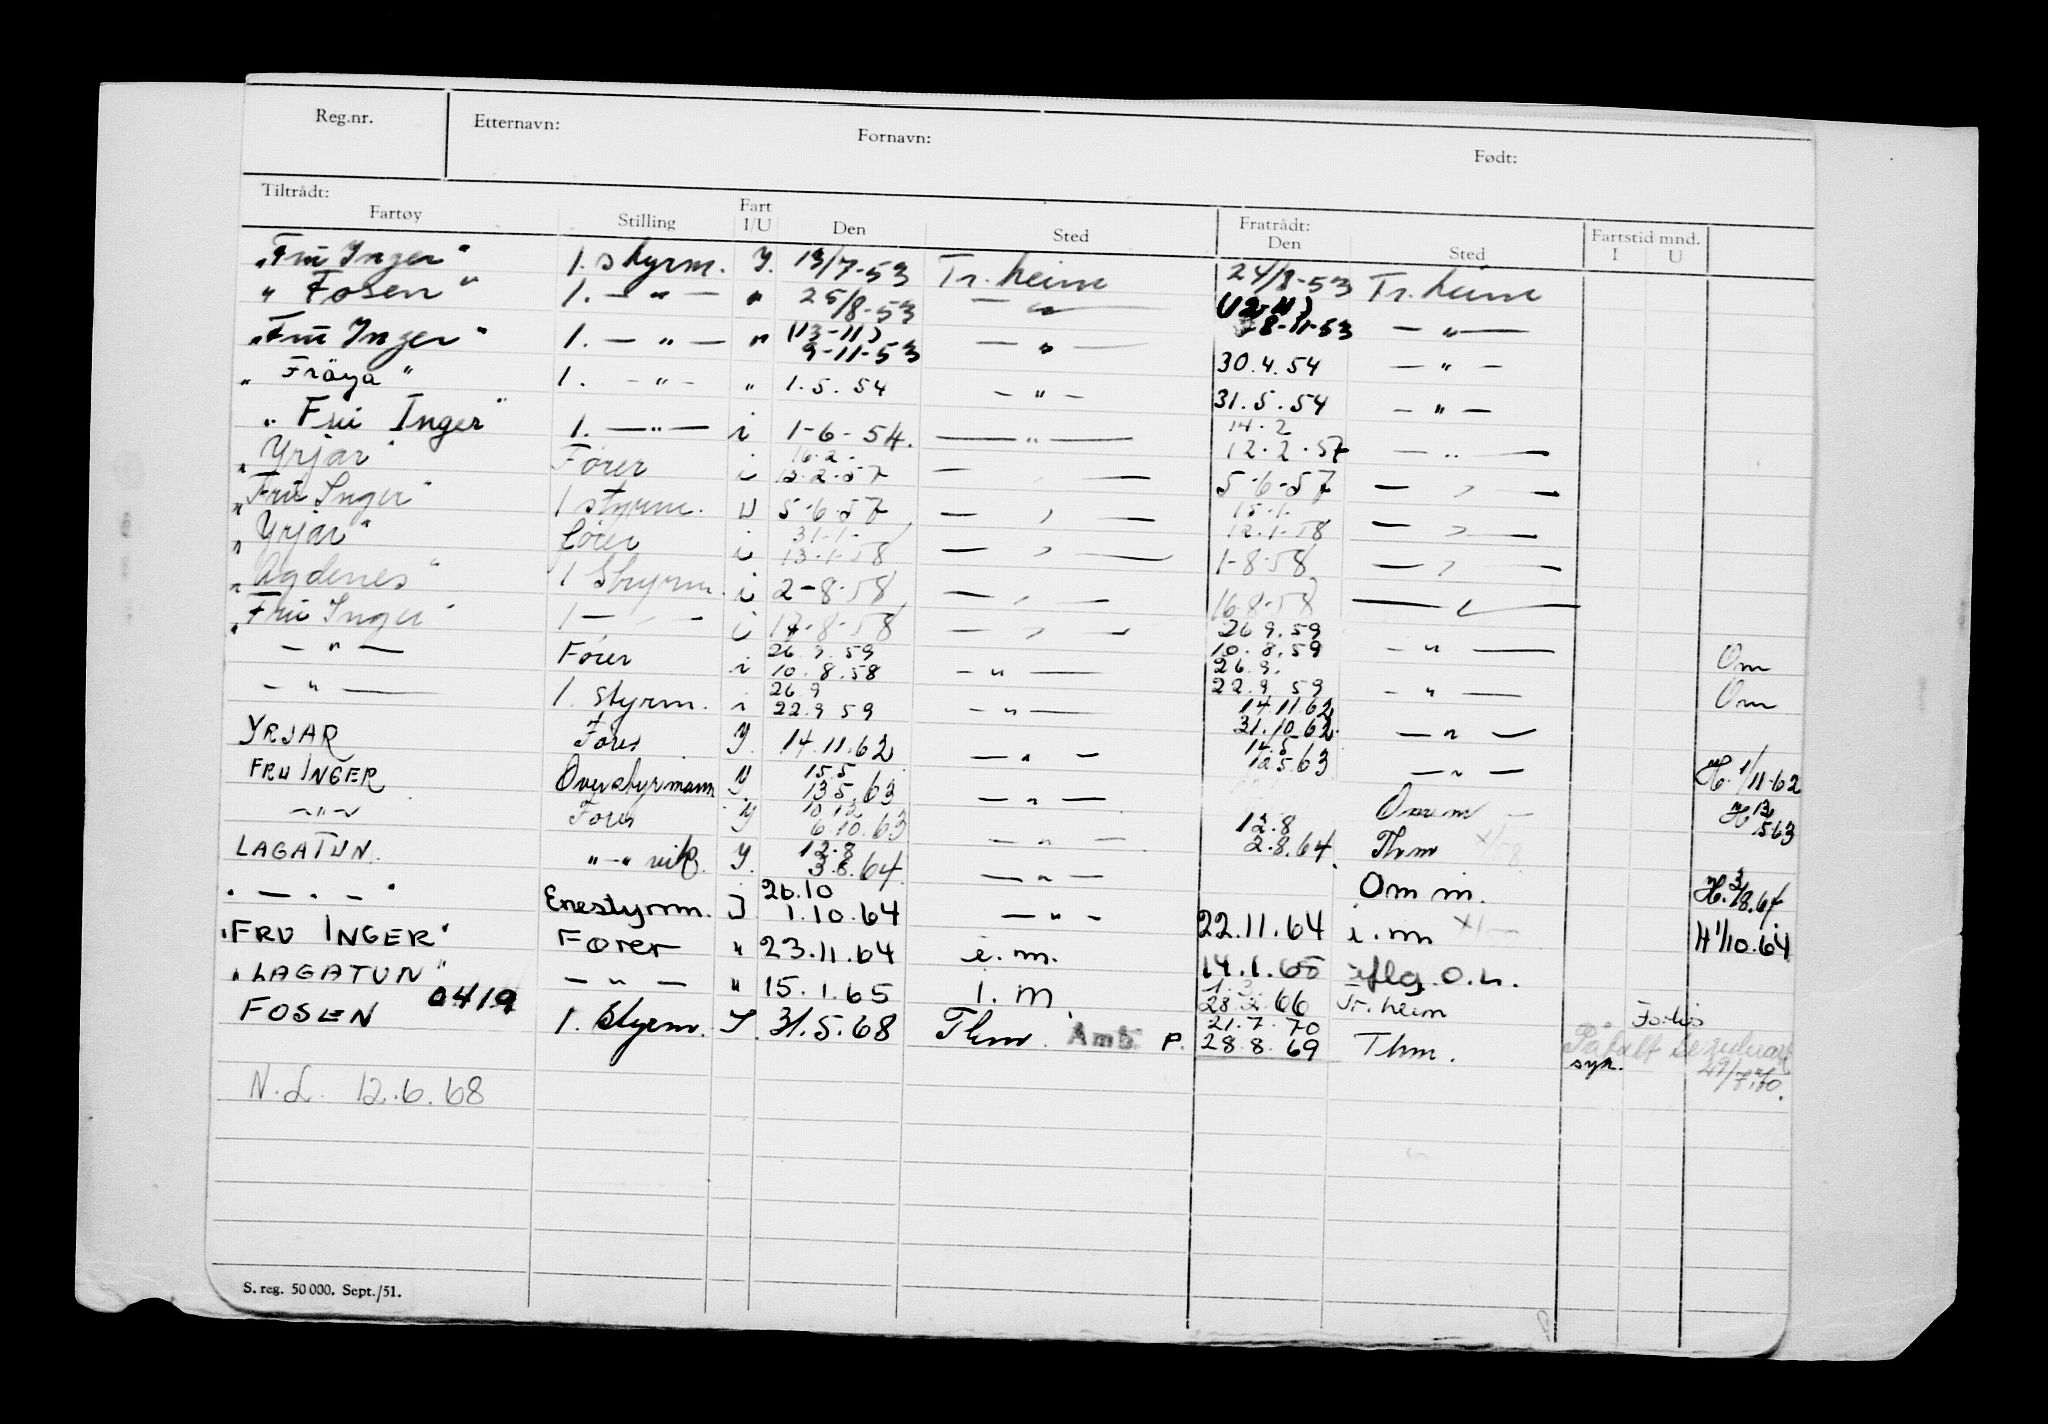 Reg.nr. Etternavn: Fornavn: Født:
Tiltrådt: Fartøy Stilling Fart I/U Den Sted Fratrådt: Den Sted Fartstid mnd. I U
"Fru Inger" 1. styrm. Y. 13/7-53 Tr.heim 24/8-53 Tr.heim
"Fosen" 1. — " — " 25/8-53 — " — (12-11) 8-11-53 — " —
"Fru Inger" 1. — " — " (13-11) 9-11-53 — " — 30.4.54 — " —
"Fröya" 1. — " — " 1.5.54 — " — 31.5.54 — " —
"Fru Inger" 1. — " — i 1-6-54. — " — 14.2 12.2.57 — " —
"Yrjar" Fører i 16.2. 13.2.57 — " — 5-6-57 — " —
"Fru Inger" 1 styrm. U 5-6-57 — " — 15.1. 12.1.58 — " —
"Yrjar" fører i 31.1. 13.1.58 — " — 1-8-58 — " —
"Agdenes" 1 Styrm. i 2-8-58 — " — 16.8.58 — " —
"Fru Inger" 1 — " — i 17-8-58 — " — 26.9.59 10.8.59 — " — Om
— " — Fører i 26.9.59 10.8.58 — " — 26.9. 22.9.59 — " — Om
— " — 1. styrm. i 26.9 22.9.59 — " — 14.11.62 31.10.62 — " —
YRJAR Fører Y. 14.11.62 — " — 14.5 12.5.63 — " — H. 1/11-62
FRU INGER Overstyrmann Y. 15.5 13.5.63 — " — H 13/5 63
— " — Fører Y 10.12 6.10.63 — " — 12.8 2.8.64 Thm
LAGATUN " — " vik. Y. 12.8 3.8.64 — " — Om m. H. 3/8.64
" — " — " Enestyrm. I 26.10 1.10.64 — " — 22.11.64 i.m H 1/10.64
"FRU INGER" Fører " 23.11.64 i.m. 14.1.65 flg. o.h.
"LAGATUN" — " — " 15.1.65 i.m 1.3. 28.2.66 Tr.heim
FOSEN 0419 1. styrm. I. 31.5.68 Thm. Amb. P. 21.7.70 28.8.69 Thm. syk. 29/7.70.
N.L. 12.6.68
S. reg. 50 000. Sept./51.